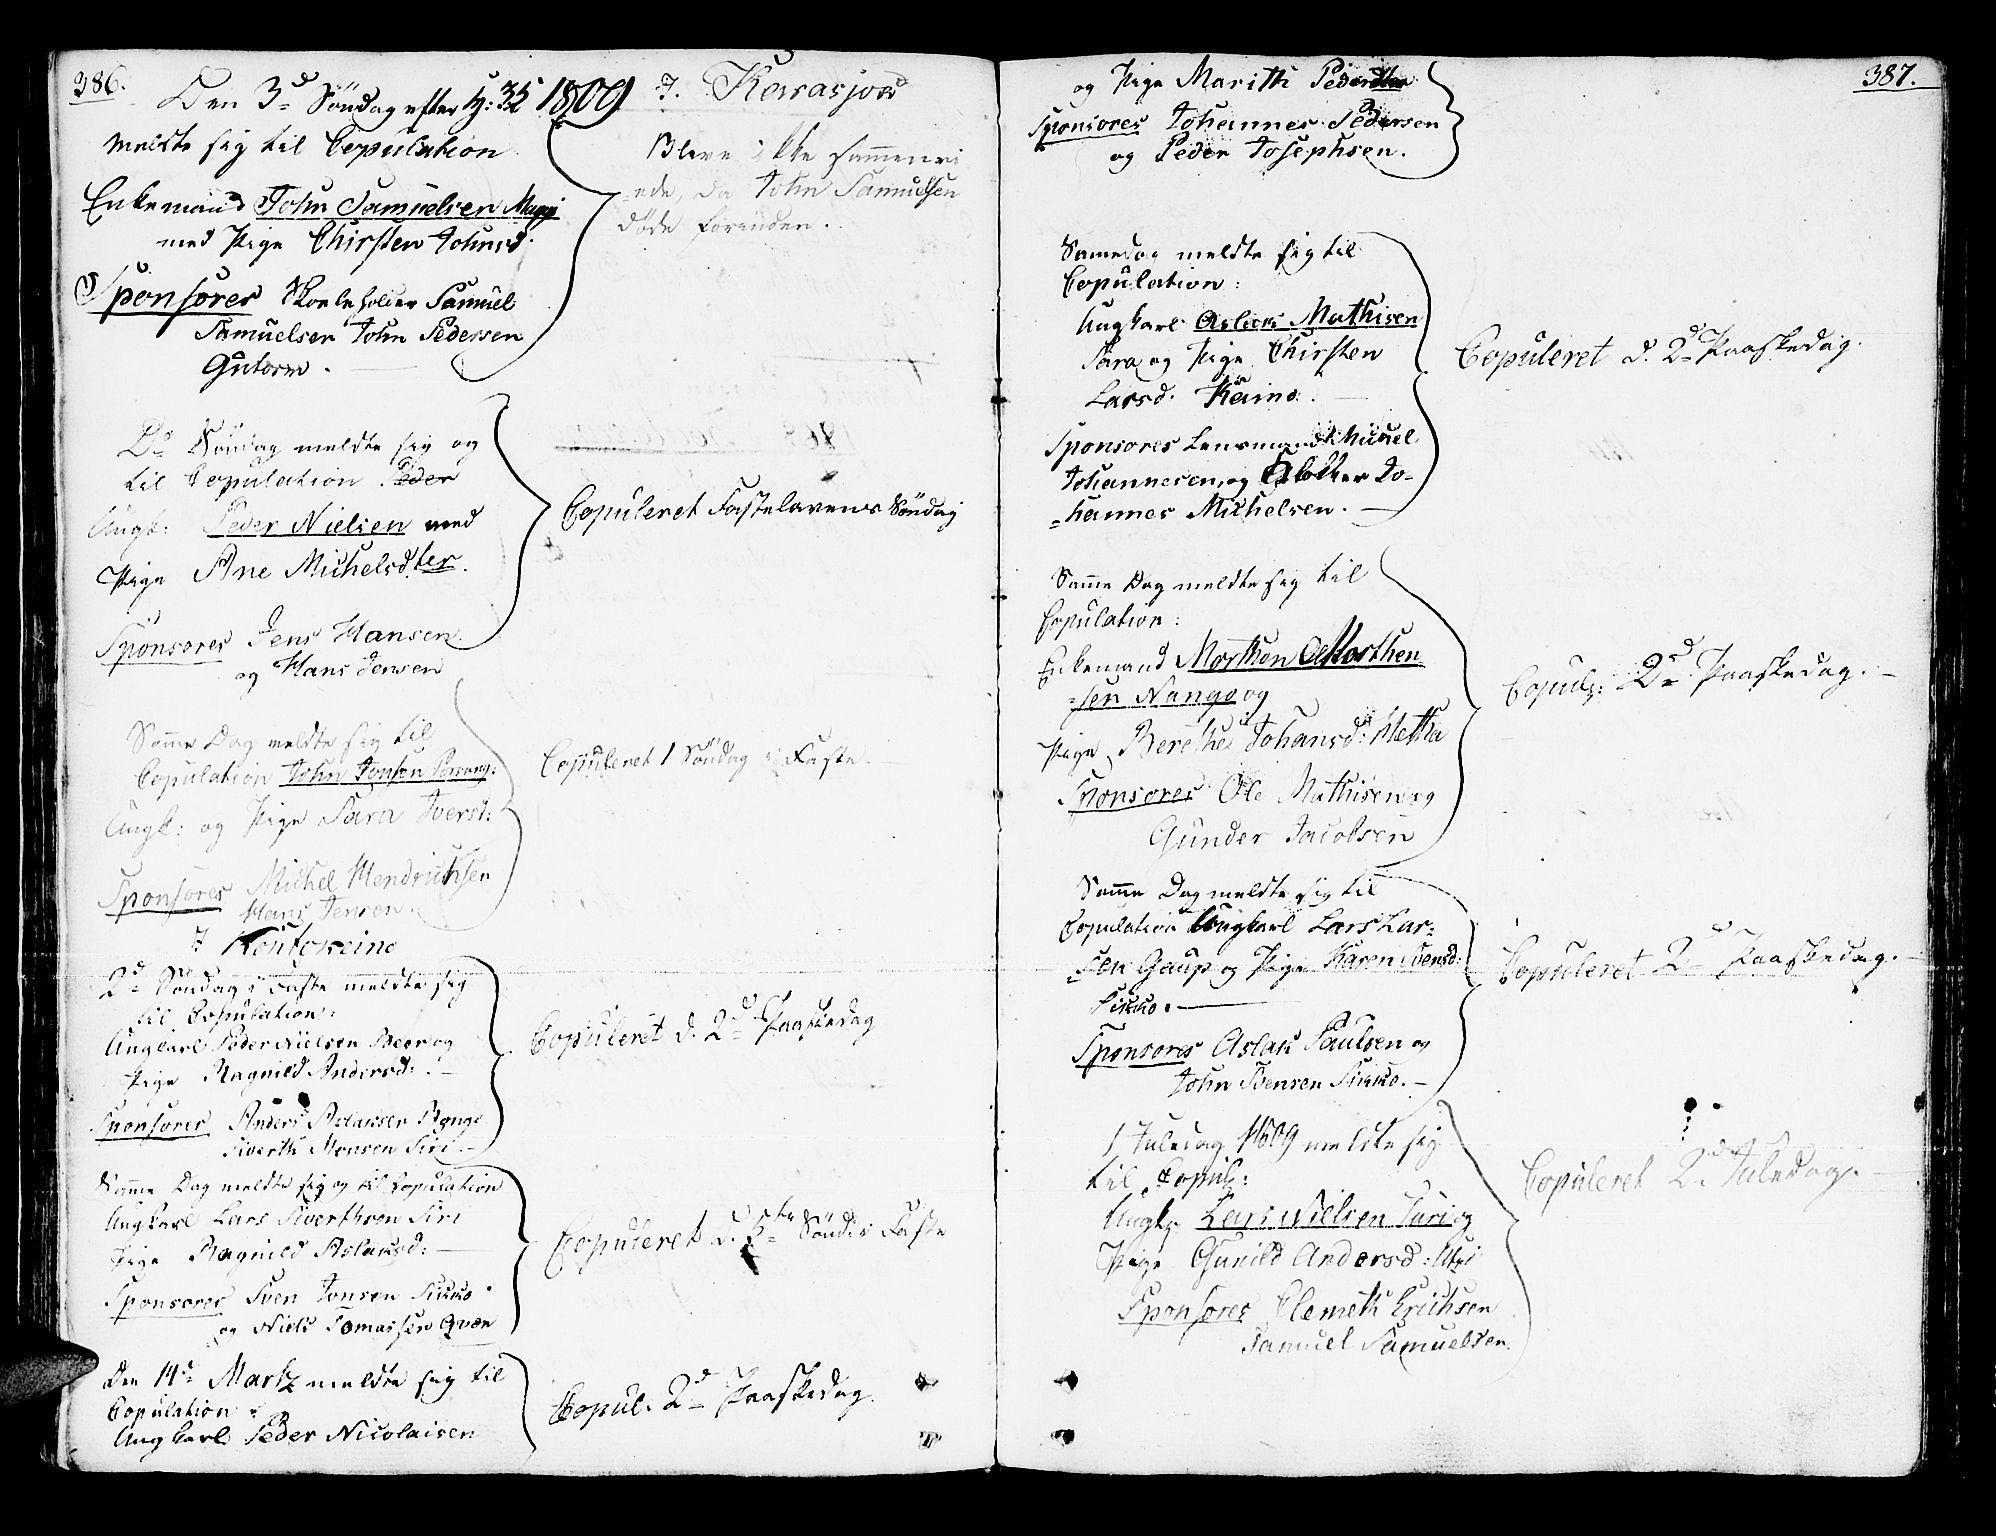 386.
Den 3d Söndag efter H: 3K 1809
meldte sig til Copulation
Enkemand John Samuelsen
med Pige Chirsten Johnsd.
Sponsores Skoleholder Samuel
Samuelsen John Pedersen
Gutorm.
J. Karasjok
Bleve ikke sammenvi
=ede, da John Samuelsen
döde forinden.
Do Söndag meldte sig og
til Copulation Peder
Ungk: Peder Nielsen med
Pige Ane Michelsd.ter.
Sponsores Jens Hansen
og Hans Jensen
Copuleret Fastelavens Söndag
Samme Dag meldte sig til
Copulation John Jonsen Porsang:
Ungk: og Pige Sara Iversd:
Sponsores Michel Hendrichsen
Hans Jensen.
Copuleret 1 Söndag i Faste.
J Koutokeino
2d Söndag i Faste meldte sig
til Copulation:
Ungkarl Peder Nielsen Beer og
Pige Ragnild Andersd:
Sponsores Anders Aslaksen Bongo
Siverth Monsen Siri.
Copuleret d. 2d Paaskedag
Samme Dag meldte sig og til Copulation
Ungkarl Lars Siverthsen Siri
Pige Ragnild Aslaksd:
Sponsores Sven Jonsen Sikko
og Niels Tomassen Qvæn
Copuleret d. 5te Sönd: i Faste
Den 14d Martz meldte sig til
Copulation
Ungkarl Peder Nicolaisen
Copul. 2d Paaskedag.
387.
og Pige Marith Pedersdter
Sponsores Johannes Pedersen
og Peder Josephsen.
Samedag meldte sig til
Copulation:
Ungkarl Aslak Mathisen
Sara og Pige Chirsten
Larsd. Kaino.
Sponsores Lensmand Michel
Johannesen, og Klokker Jo-
=hannes Michelsen.
Copuleret d. 2d Paaskedag.
Samme Dag meldte sig til
Copulation:
Enkemand Morthen Morthen
=sen Nango og
Pige Berethe Johansd: Hætta
Sponsores Ole Mathisen og
Gunder Jacobsen
Copul: 2d Paaskedag.
Samme Dag meldte sig til
Copulation Ungkarl Lars Lar=
=sen Gaup og Pige Karen Svensd:
Sikko.
Sponsores Aslak Paulsen og
John Svensen Sikko.
Copuleret 2d Paaskedag.
1 Juledag 1809 meldte sig
til Copul:
Ungk. Lars Nielsen Turi og
Pige Gunild Andersd: Utsi
Sponsores Clemeth Erichsen
Samuel Samuelsen.
Copuleret 2d Juledag.